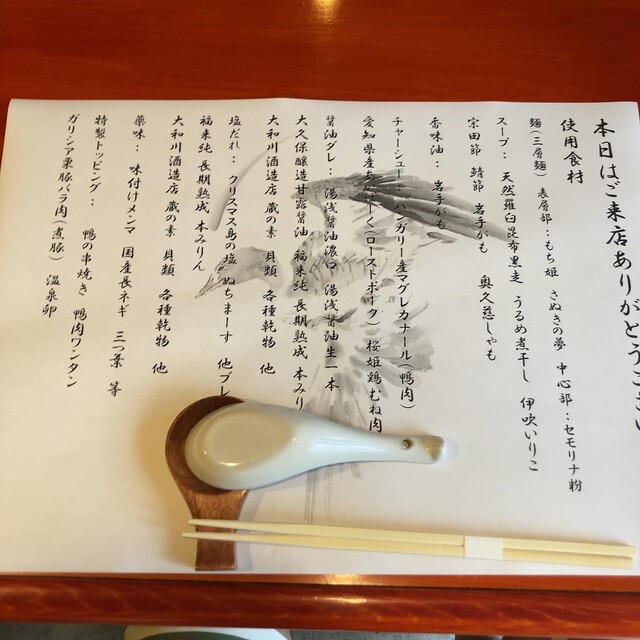 本日はご来店ありがとうござい
使用食材
麺(三層麺) 表層部:もち姫 さぬきの夢 中心部:セモリナ粉
スープ: 天然羅臼昆布黒走 うるめ煮干し 伊吹いりこ
宗田節 鯖節 岩手がも 奥久慈しゃも
香味油: 岩手がも
チャーシュー: ハンガリー産マグレカナール(鴨肉)
愛知県産あいぽーく(ローストポーク) 桜姫鶏むね肉
醤油ダレ: 湯浅醤油濃口 湯浅醤油生一本
大久保醸造甘露醤油 福来純 長期熟成 本みり
大和川酒造店 蔵の素 貝類 各種乾物 他
塩だれ: クリスマス島の塩 ぬちまーす 他ブレ
福来純 長期熟成 本みりん
大和川酒造店 蔵の素 貝類 各種乾物 他
薬味: 味付けメンマ 国産長ネギ 三つ葉 等
特製トッピング: 鴨の串焼き 鴨肉ワンタン
ガリシア栗豚バラ肉(煮豚) 温泉卵